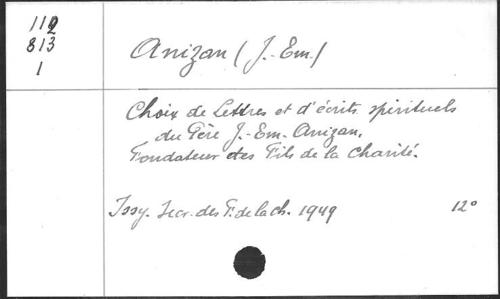 112
813
1
Anizan (J.-Em.)
Choix de Lettres et d'écrits spirituels
du Père J.-Em. Anizan,
Fondateur des Fils de la Charité.
Issy. Secr. des F. de la Ch. 1949 12°